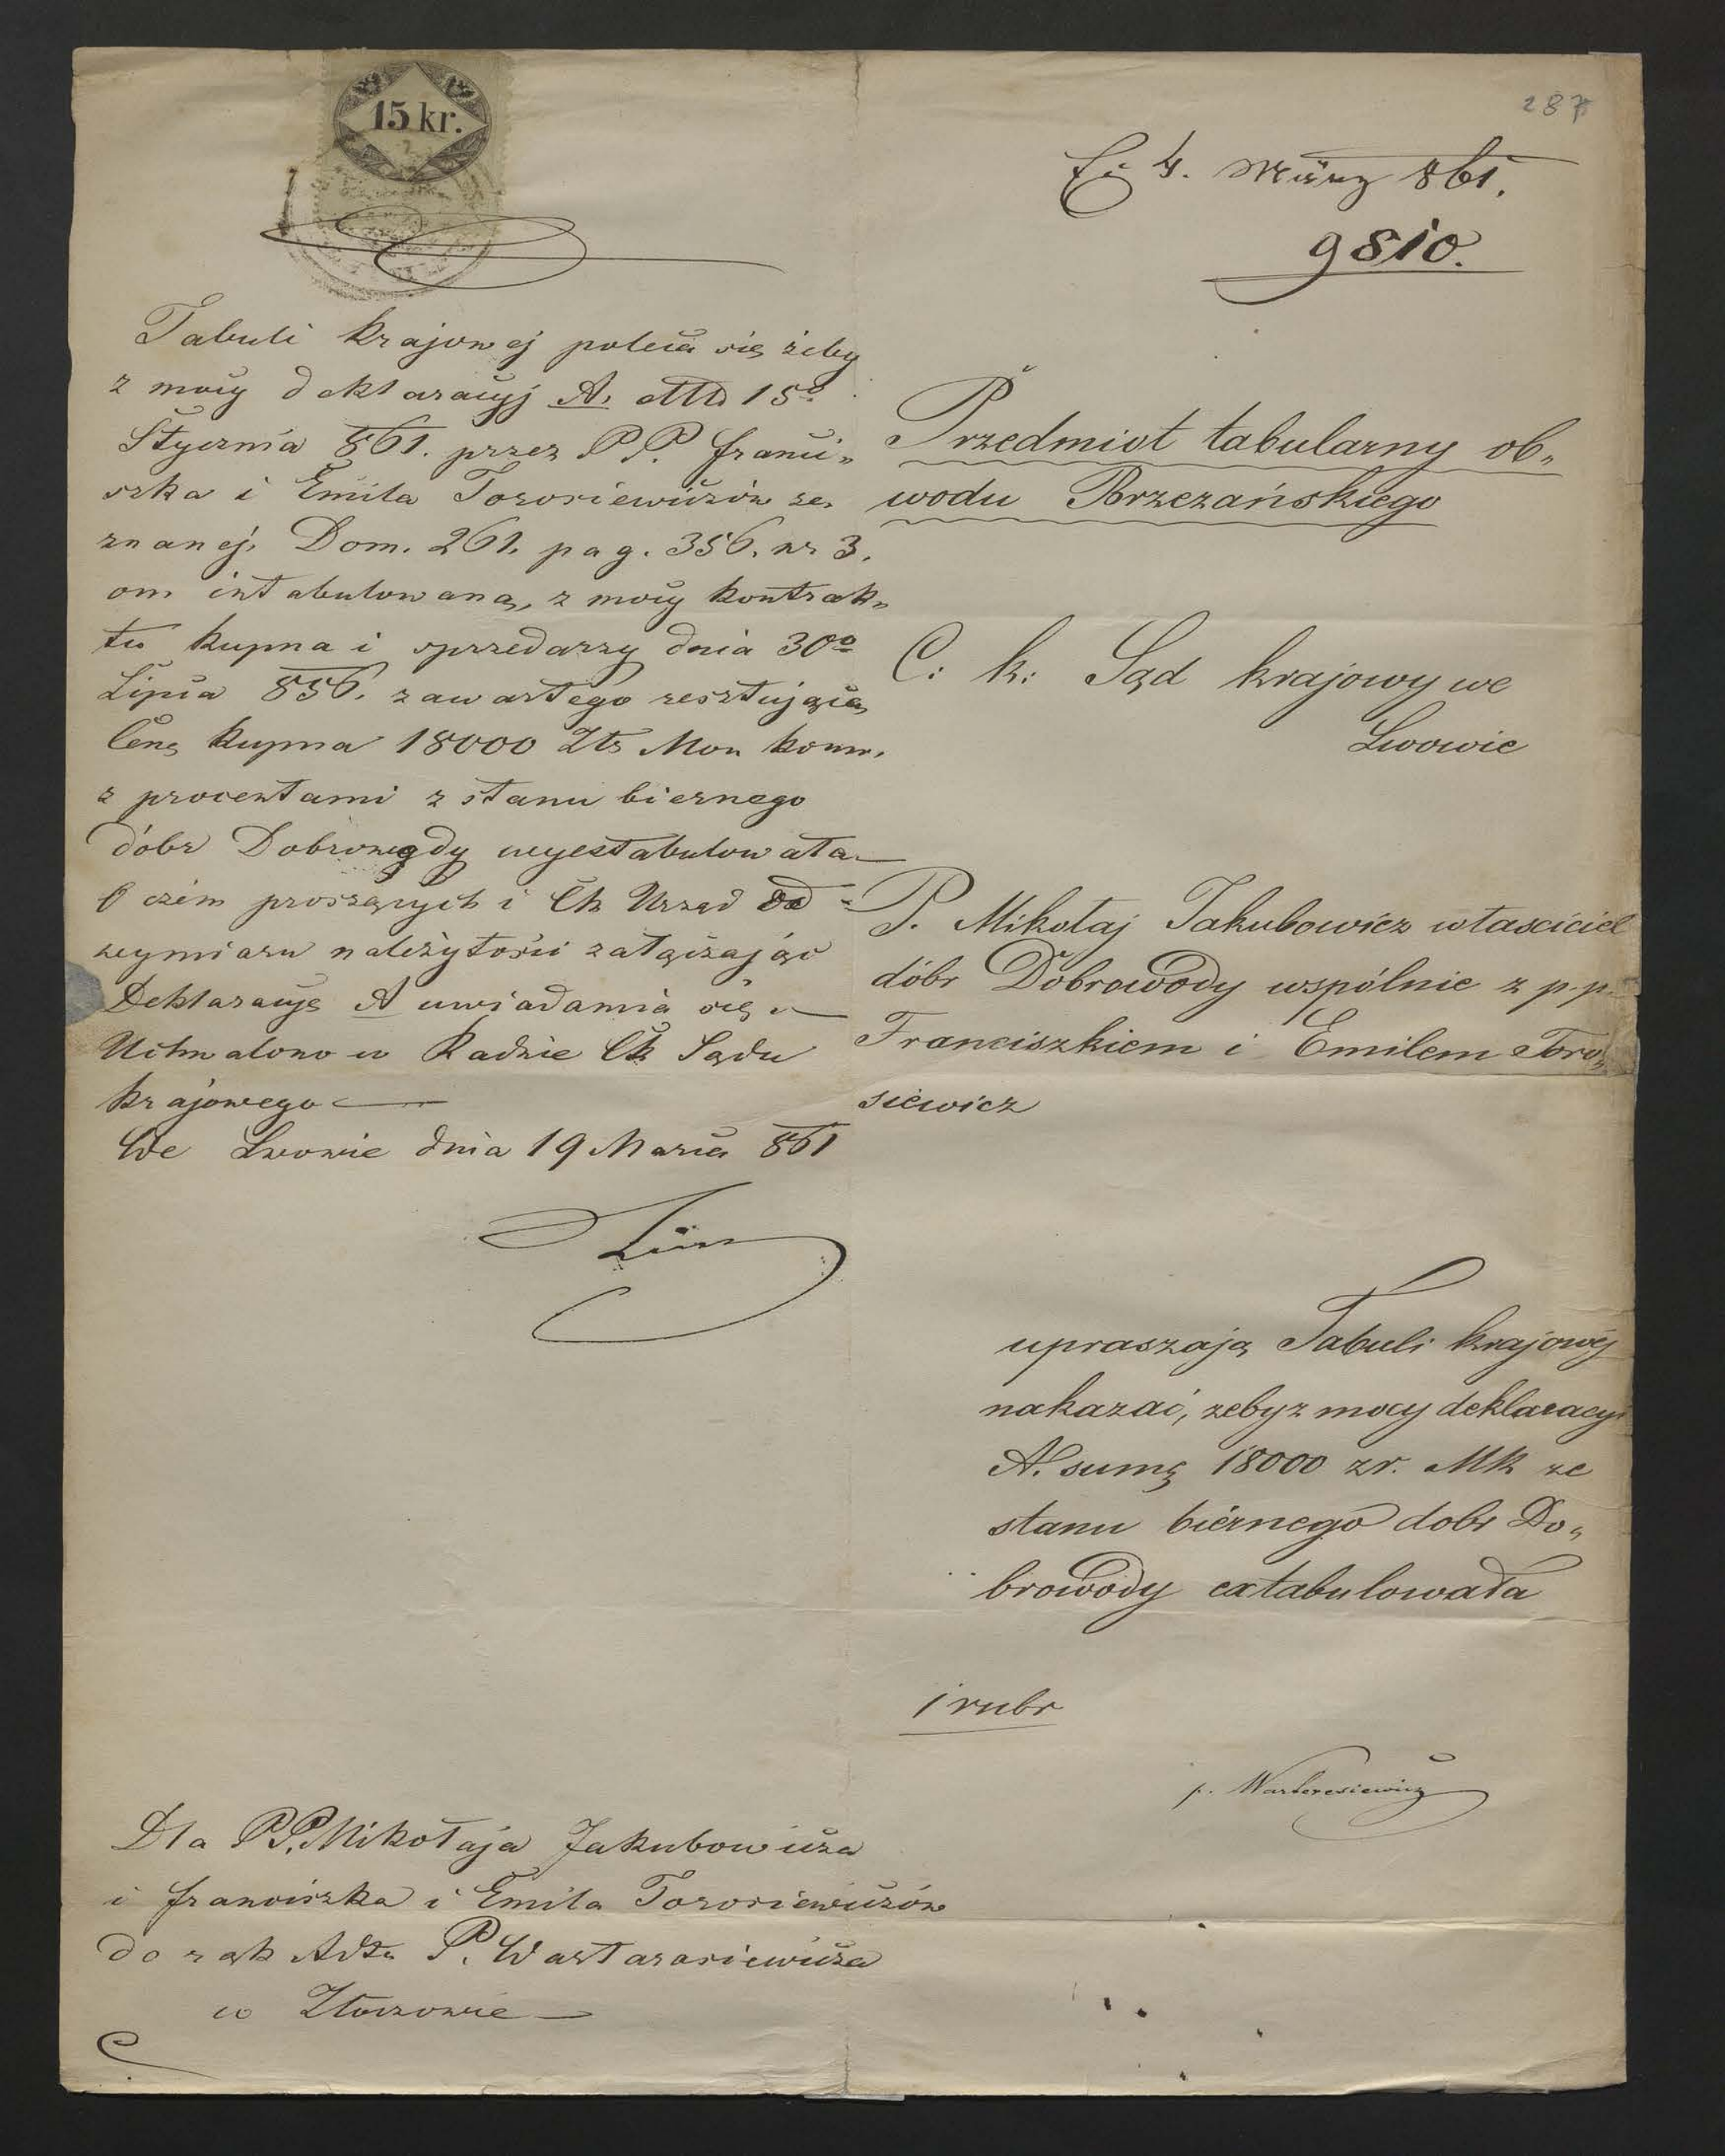 287
15 kr.
4. März 861.
9810.
Tabuli krajowej poleca się żeby
z mocy deklaracyj A. ddto 15º
Stycznia 861. przez PP. Franci„
szka i Emila Torosiewiczów ze„
znanej, Dom. 261. pag. 356. nr 3.
on. intabulowaną, z mocy kontrak„
tu kupna i sprzedarzy dnia 30º
Lipca 856. zawartego resztującą
Cenę kupna 18000 Złr Mon konw.
z procentami z stanu biernego
dóbr Dobrowody wyestabulowała—
O czém proszących i Ck Urząd
wymiaru należytości załączając
Deklaracyę A uwiadamia się—
Uchwalono w Radzie Ck Sądu
krajowego—
We Lwowie dnia 19 Marca 861
Dla PP. Mikołaja Jakubowicza
i Franciszka i Emila Torosiewiczów
do rąk Adta P. Wartarasiewicza
w Złoczowie—
Przedmiot tabularny ob„
wodu Brzezańskiego
C: k: Sąd krajowy we
Lwowie
P. Mikołaj Jakubowicz własciciel
dóbr Dobrowody wspólnie z p.p.
Franciszkiem i Emilem Toro„
siewicz
upraszają Tabuli krajowéj
nakazać, zeby z mocy deklaracyi
A. sumę 18000 zr. MK ze
stanu biérnego dobr Do„
browody extabulowała
1 rubr
p. Warteresiewicz